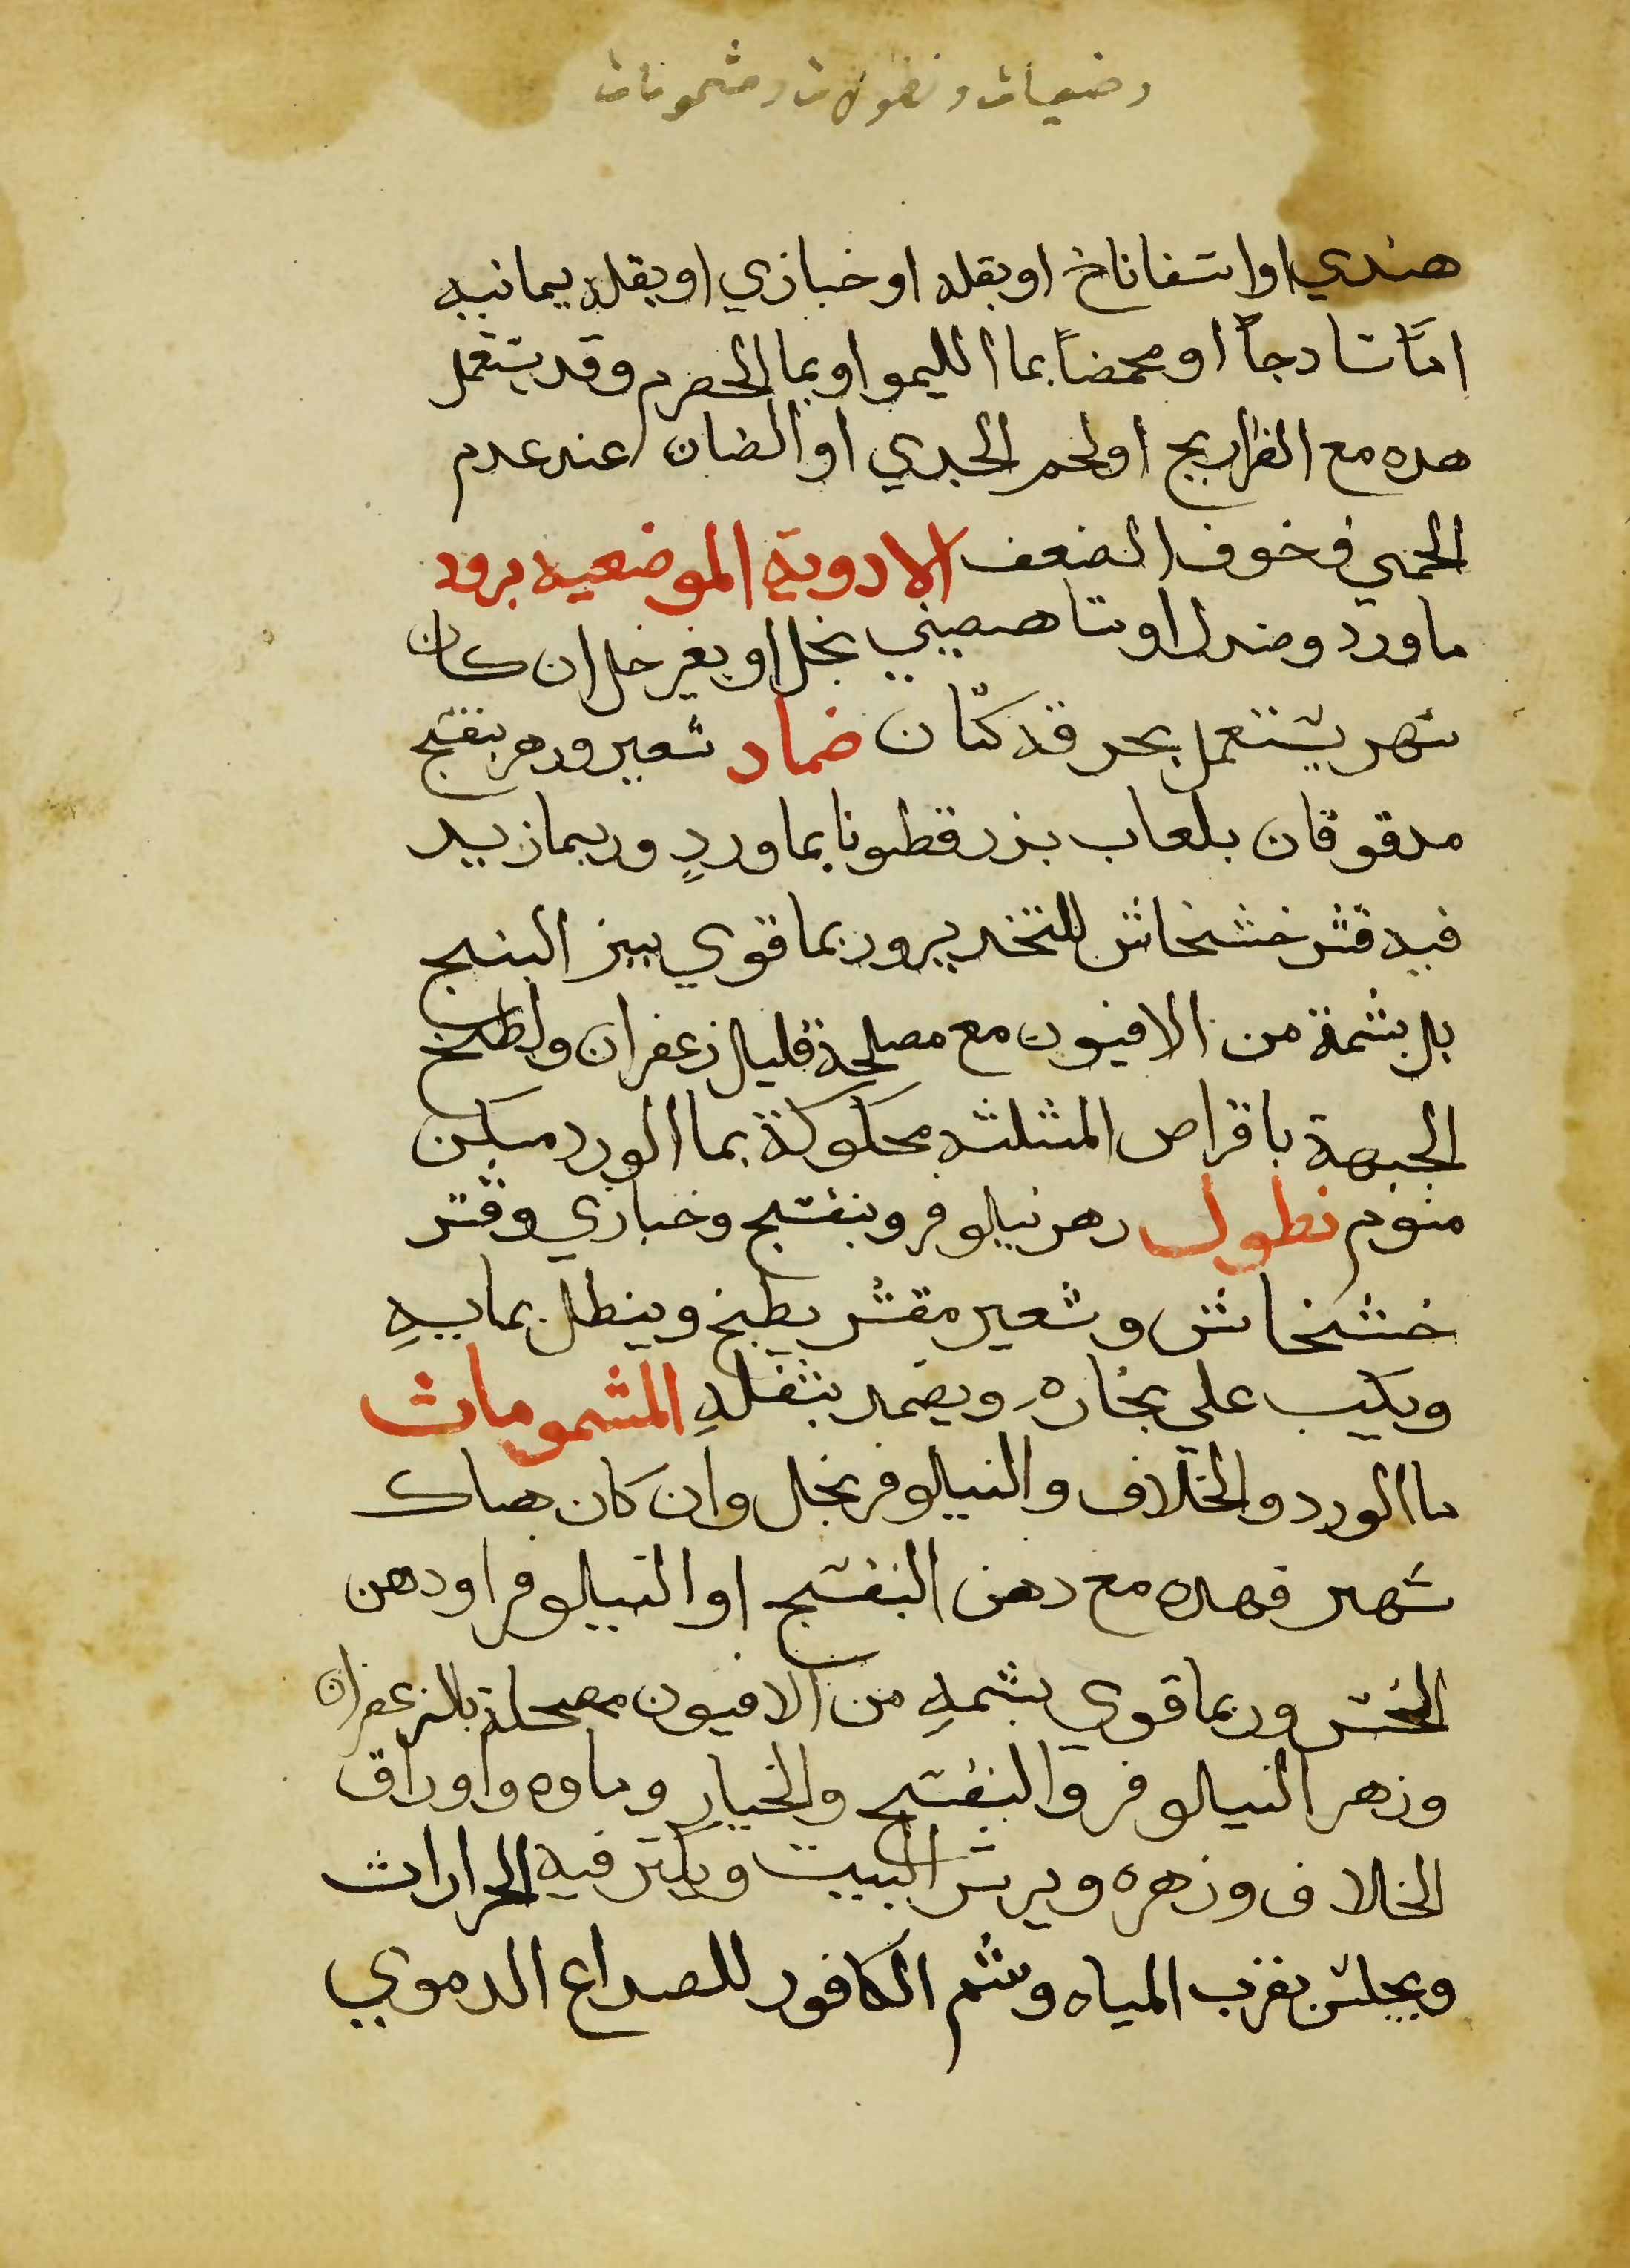 وضعيات ونطولات ومشمومات
هندي او اسفاناخ او بقله او خبازي او بقله يمانيه
امّا سادجاً او محمضاً بما الليمو او بما الحصرم وقد يستعمل
هده مع الفراريج او لحم الجدي او الضان عند عدم
الحمي وخوف الضعف الادوية الموضعيه برود
ماورد وصندل او شاهصيني بخل او بغير خل ان كان
سهر يستعمل بخرقة كتّان ضماد شعير وزهر بنفسج
مدقوقان بلعاب بزرقطونا بماوردٍ وربما زيد
فيه قشر خشخاش للتخدير وربما قوي ببزر البنج
بل بشمة من الافيون مع مصلحة قليل زعفران ولطخ
الجبهة باقراص المثلثه محكوكة بما الورد مسكن
منوم نطول زهر نيلوفر وبنفسج وخبازي وقشر
خشخاش وشعير مقشر يطبخ وينطل بمايهِ
ويكب علي بخارهِ ويضمد بثفلهِ المشمومات
ما الورد والخلاف والنيلوفر بخل وان كان هناك
سهر فهده مع دهن البنفسج او النيلوفر او دهن
الخس وربما قوي بشمهِ من الافيون مصحلة بالزعفران
وزهر النيلوفر والبنفسج والخيار وماوه واوراق
الخلاف وزهره ويرش البيت ويكثر فيه الحرارات
ويجلس بقرب المياه وشم الكافور للصداع الدموي